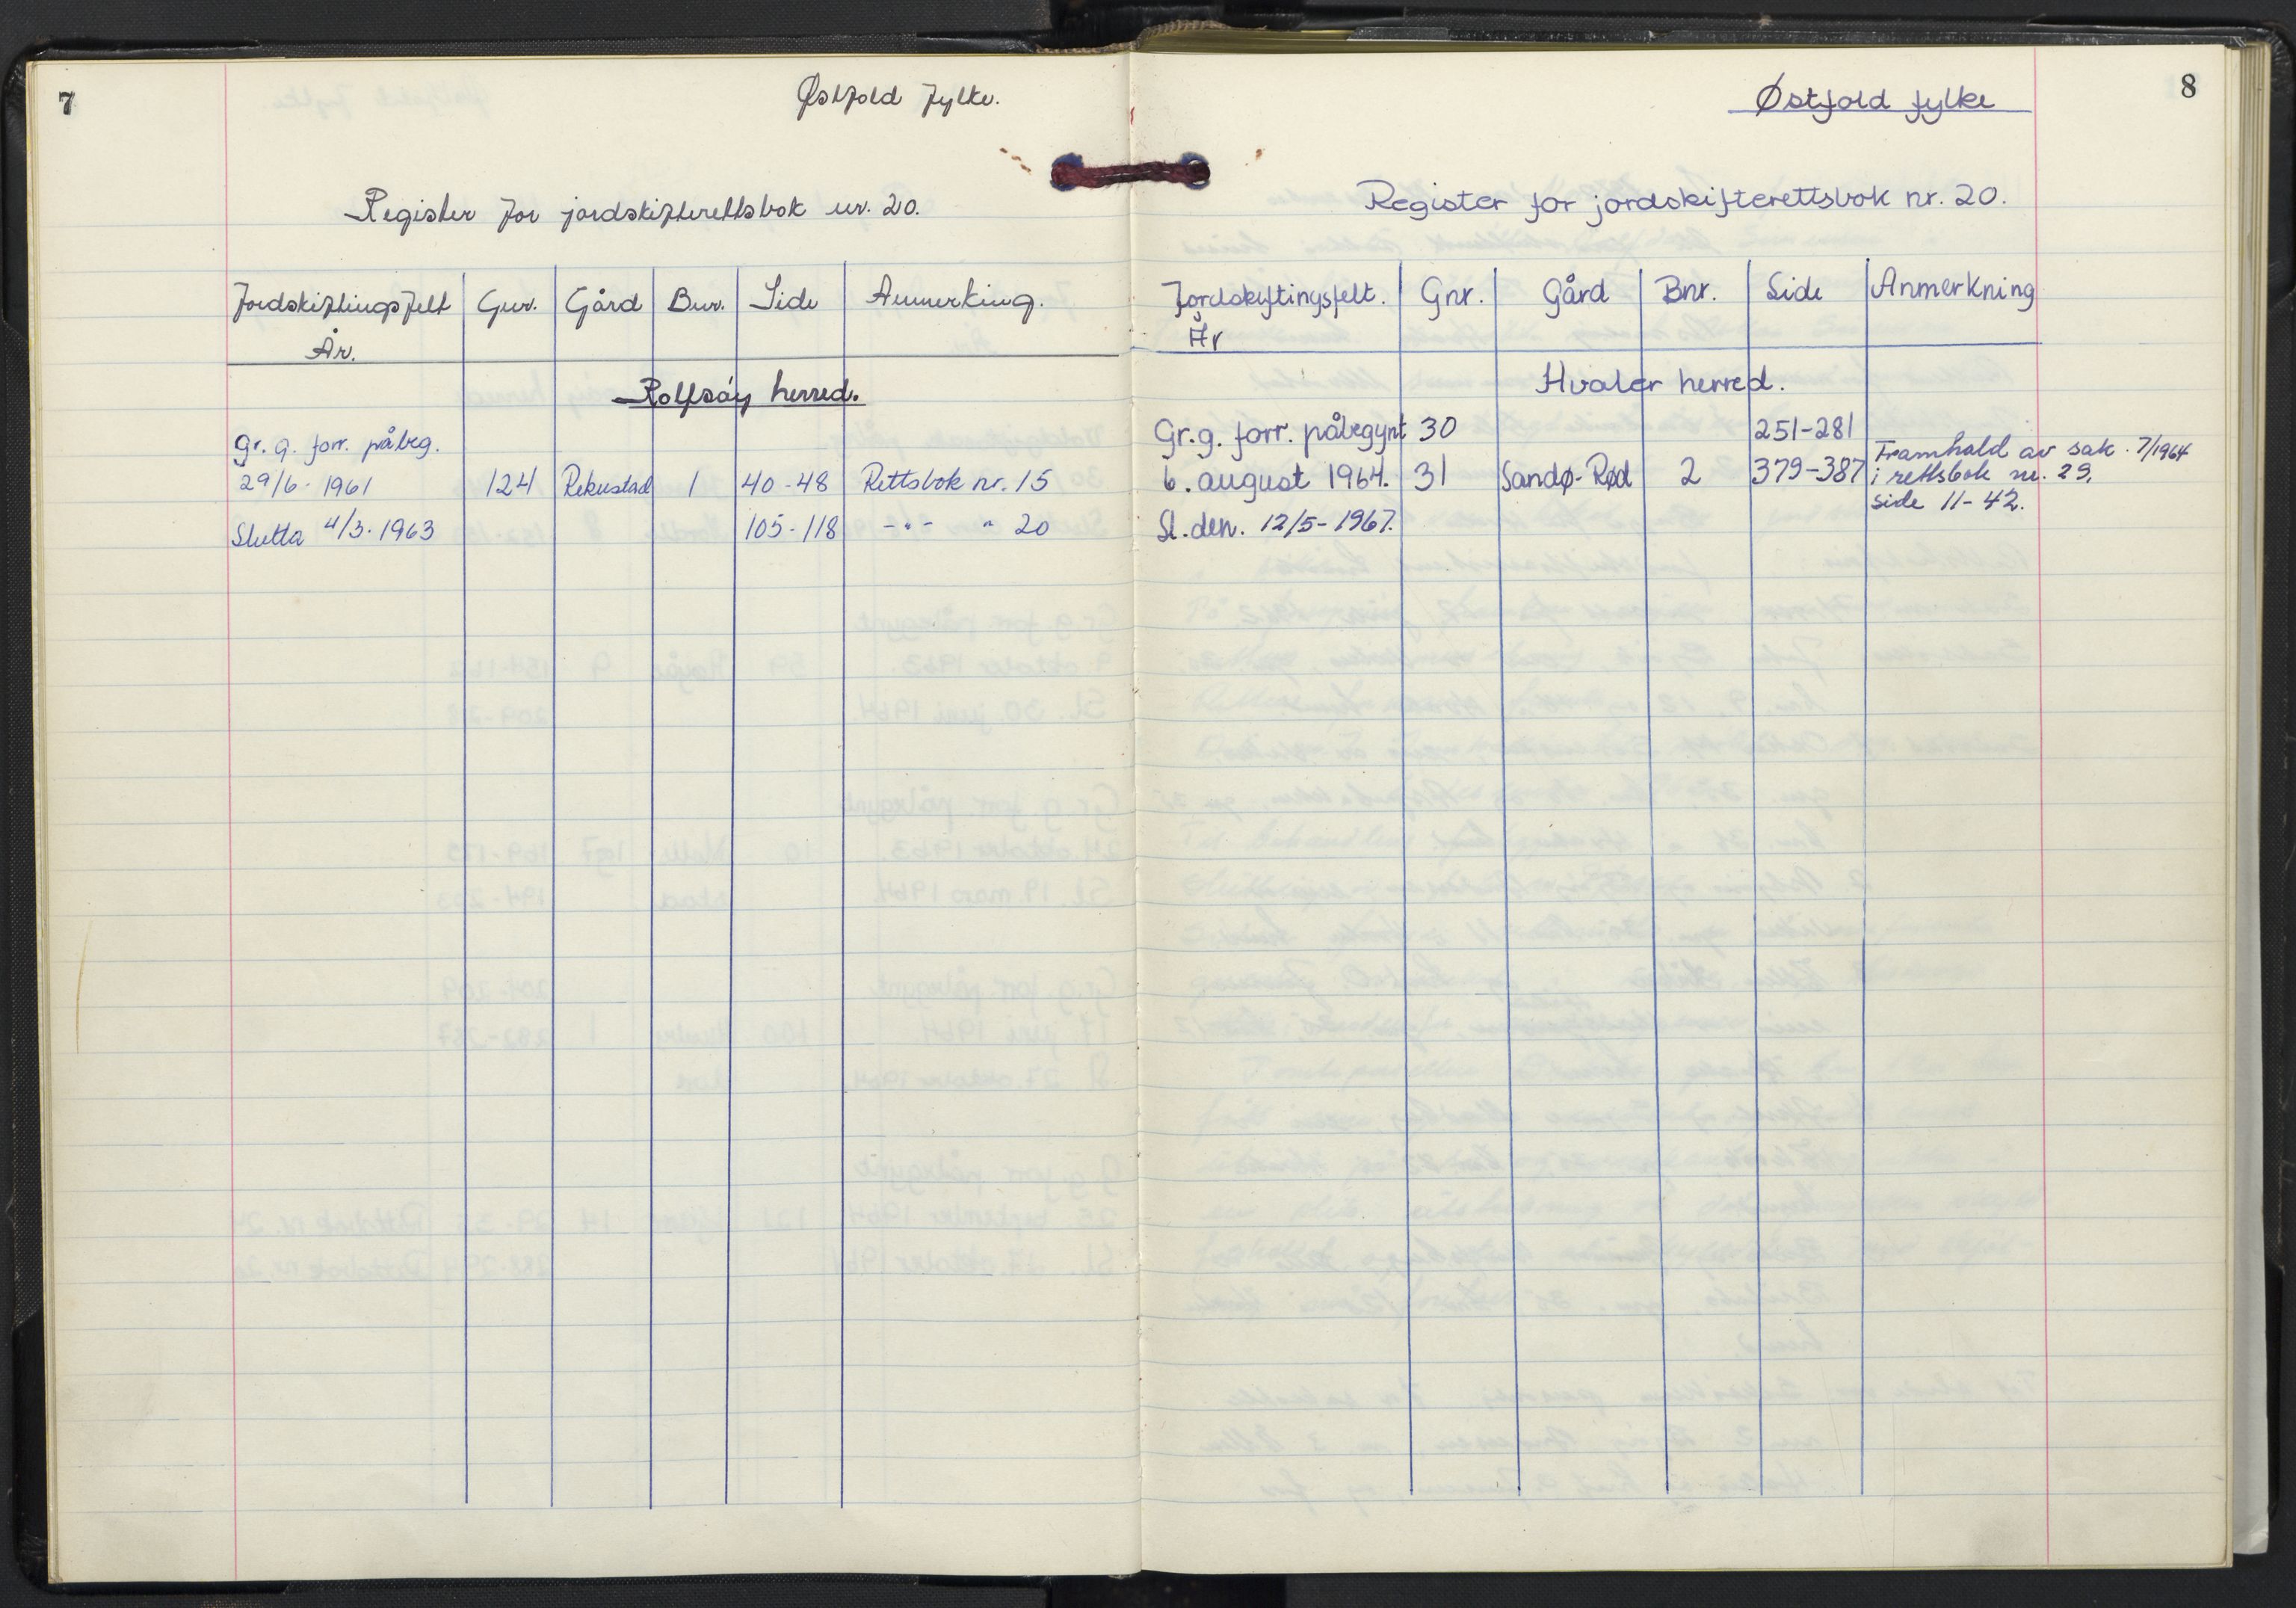 7
Østfold fylke.
Register for jordskifterettsbok nr. 20.
Jordskiftingsfelt Gnr. Gård Bnr. Side Anmerking.
År.
Rolfsøy herred.
Gr. g. forr. påbeg.
29/6 - 1961 124 Rekustad 1 40-48 Rettsbok nr. 15
Slutta 4/3. 1963 105-118 -"- " 20
8
Østfold fylke
Register for jordskifterettsbok nr. 20.
Jordskiftingsfelt. Gnr. Gård Bnr. Side Anmerkning
År
Hvaler herred.
Gr. g. forr. påbegynt 30 251-281
6. august 1964. 31 Sandø-Rød 2 379-387 Framhald av sak 7/1964
i rettsbok nr. 23,
side 11-42.
Sl. den. 12/5-1967.